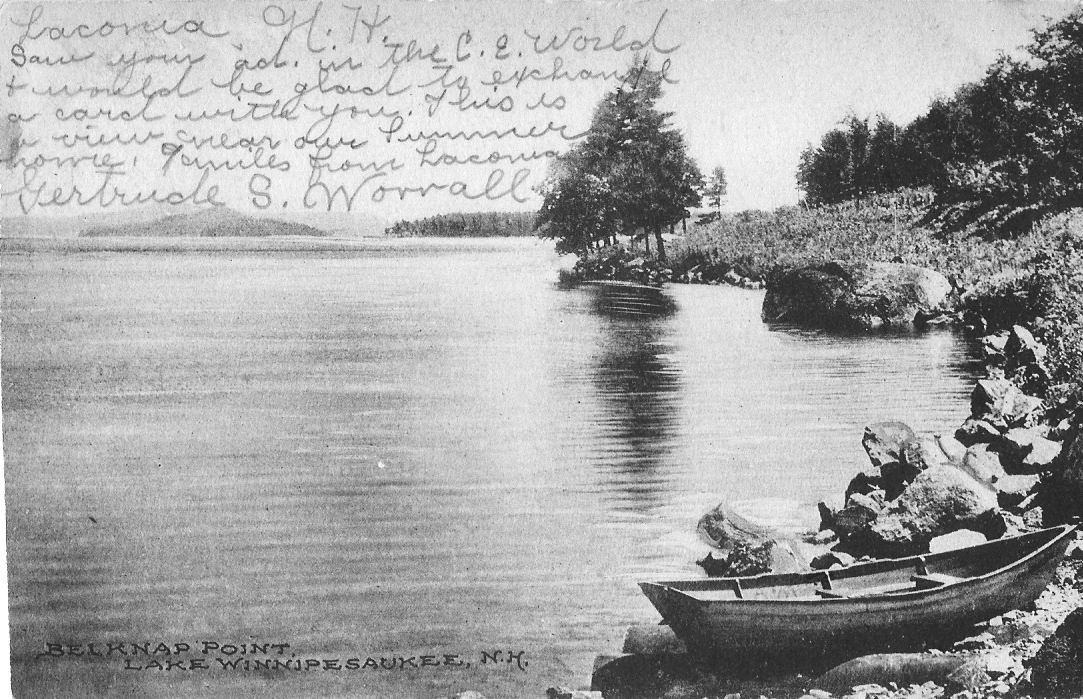 Laconia N. H.
Saw your ad. in the C. E. World
+ would be glad to exchange
a card with you. This is
a view near our summer
home, 9 miles from Laconia
Gertrude S. Worrall
BELKNAP POINT,
LAKE WINNIPESAUKEE, N.H.